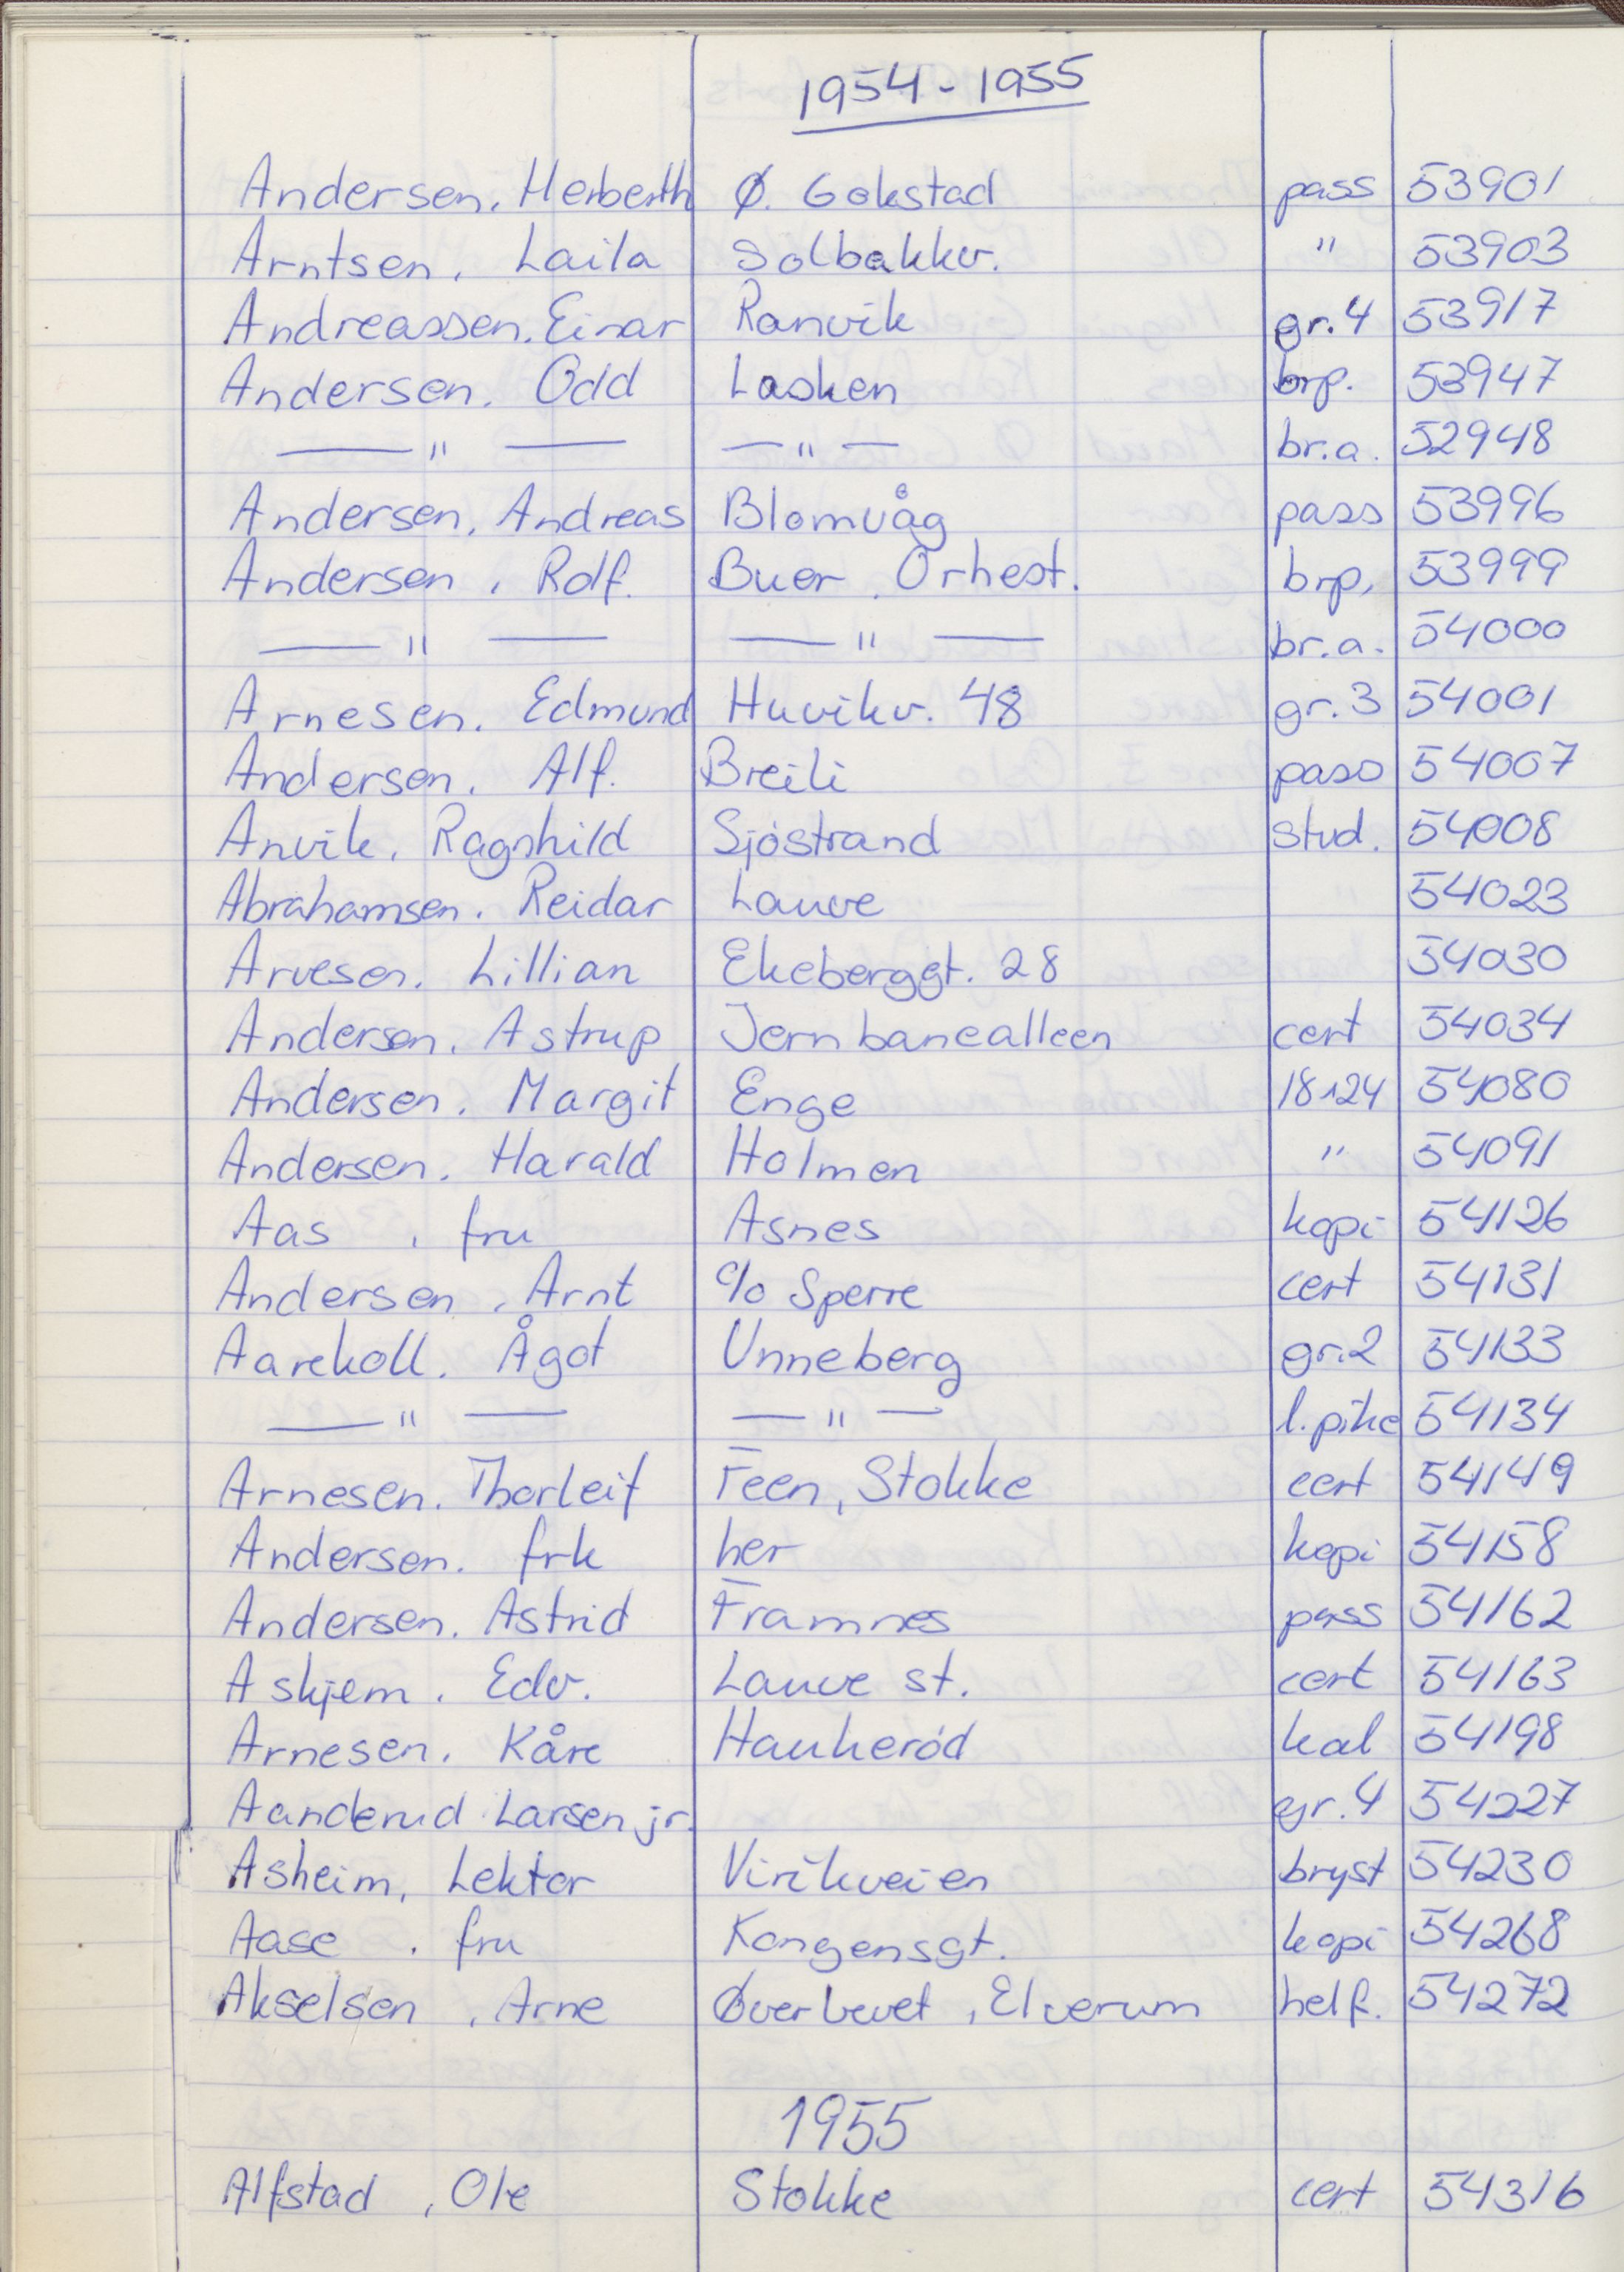 1954-1955
Andersen. Herberth Ø. Gokstad pass 53901
Arntsen. Laila Solbakkv. " 53903
Andreassen. Einar Ranvik gr.4 53917
Andersen. Odd Lasken brp. 53947
— " — — " — br.a. 52948
Andersen. Andreas Blomvåg pass 53996
Andersen. Rolf. Buer. Orhest. brp. 53999
— " — — " — br.a. 54000
Arnesen. Edmund Huvikv. 48 gr.3 54001
Andersen. Alf. Breili pass 54007
Anvik. Ragnhild Sjöstrand stud. 54008
Abrahamsen. Reidar Lauve 54023
Arvesen. Lillian Ekeberggt. 28 54030
Andersen. Astrup Jernbanealleen cert 54034
Andersen. Margit Enge 18x24 54080
Andersen. Harald Holmen " 54091
Aas . fru Asnes kopi 54126
Andersen. Arnt c/o Sperre cert 54131
Aarekoll. Ågot Unneberg gr.2 54133
— " — — " — l.pike 54134
Arnesen. Thorleif Feen, Stokke cert 54149
Andersen. frk her kopi 54158
Andersen. Astrid Framnes pass 54162
Askjem. Edv. Lauve st. cert 54163
Arnesen. Kåre Haukeröd kal 54198
Aanderud Larsen jr. gr.4 54227
Asheim, Lektor Virikveien bryst 54230
Aase . fru Kongensgt. kopi 54268
Akselsen, Arne Øverbevet, Elverum helf. 54272
1955
Alfstad, Ole Stokke cert 54316